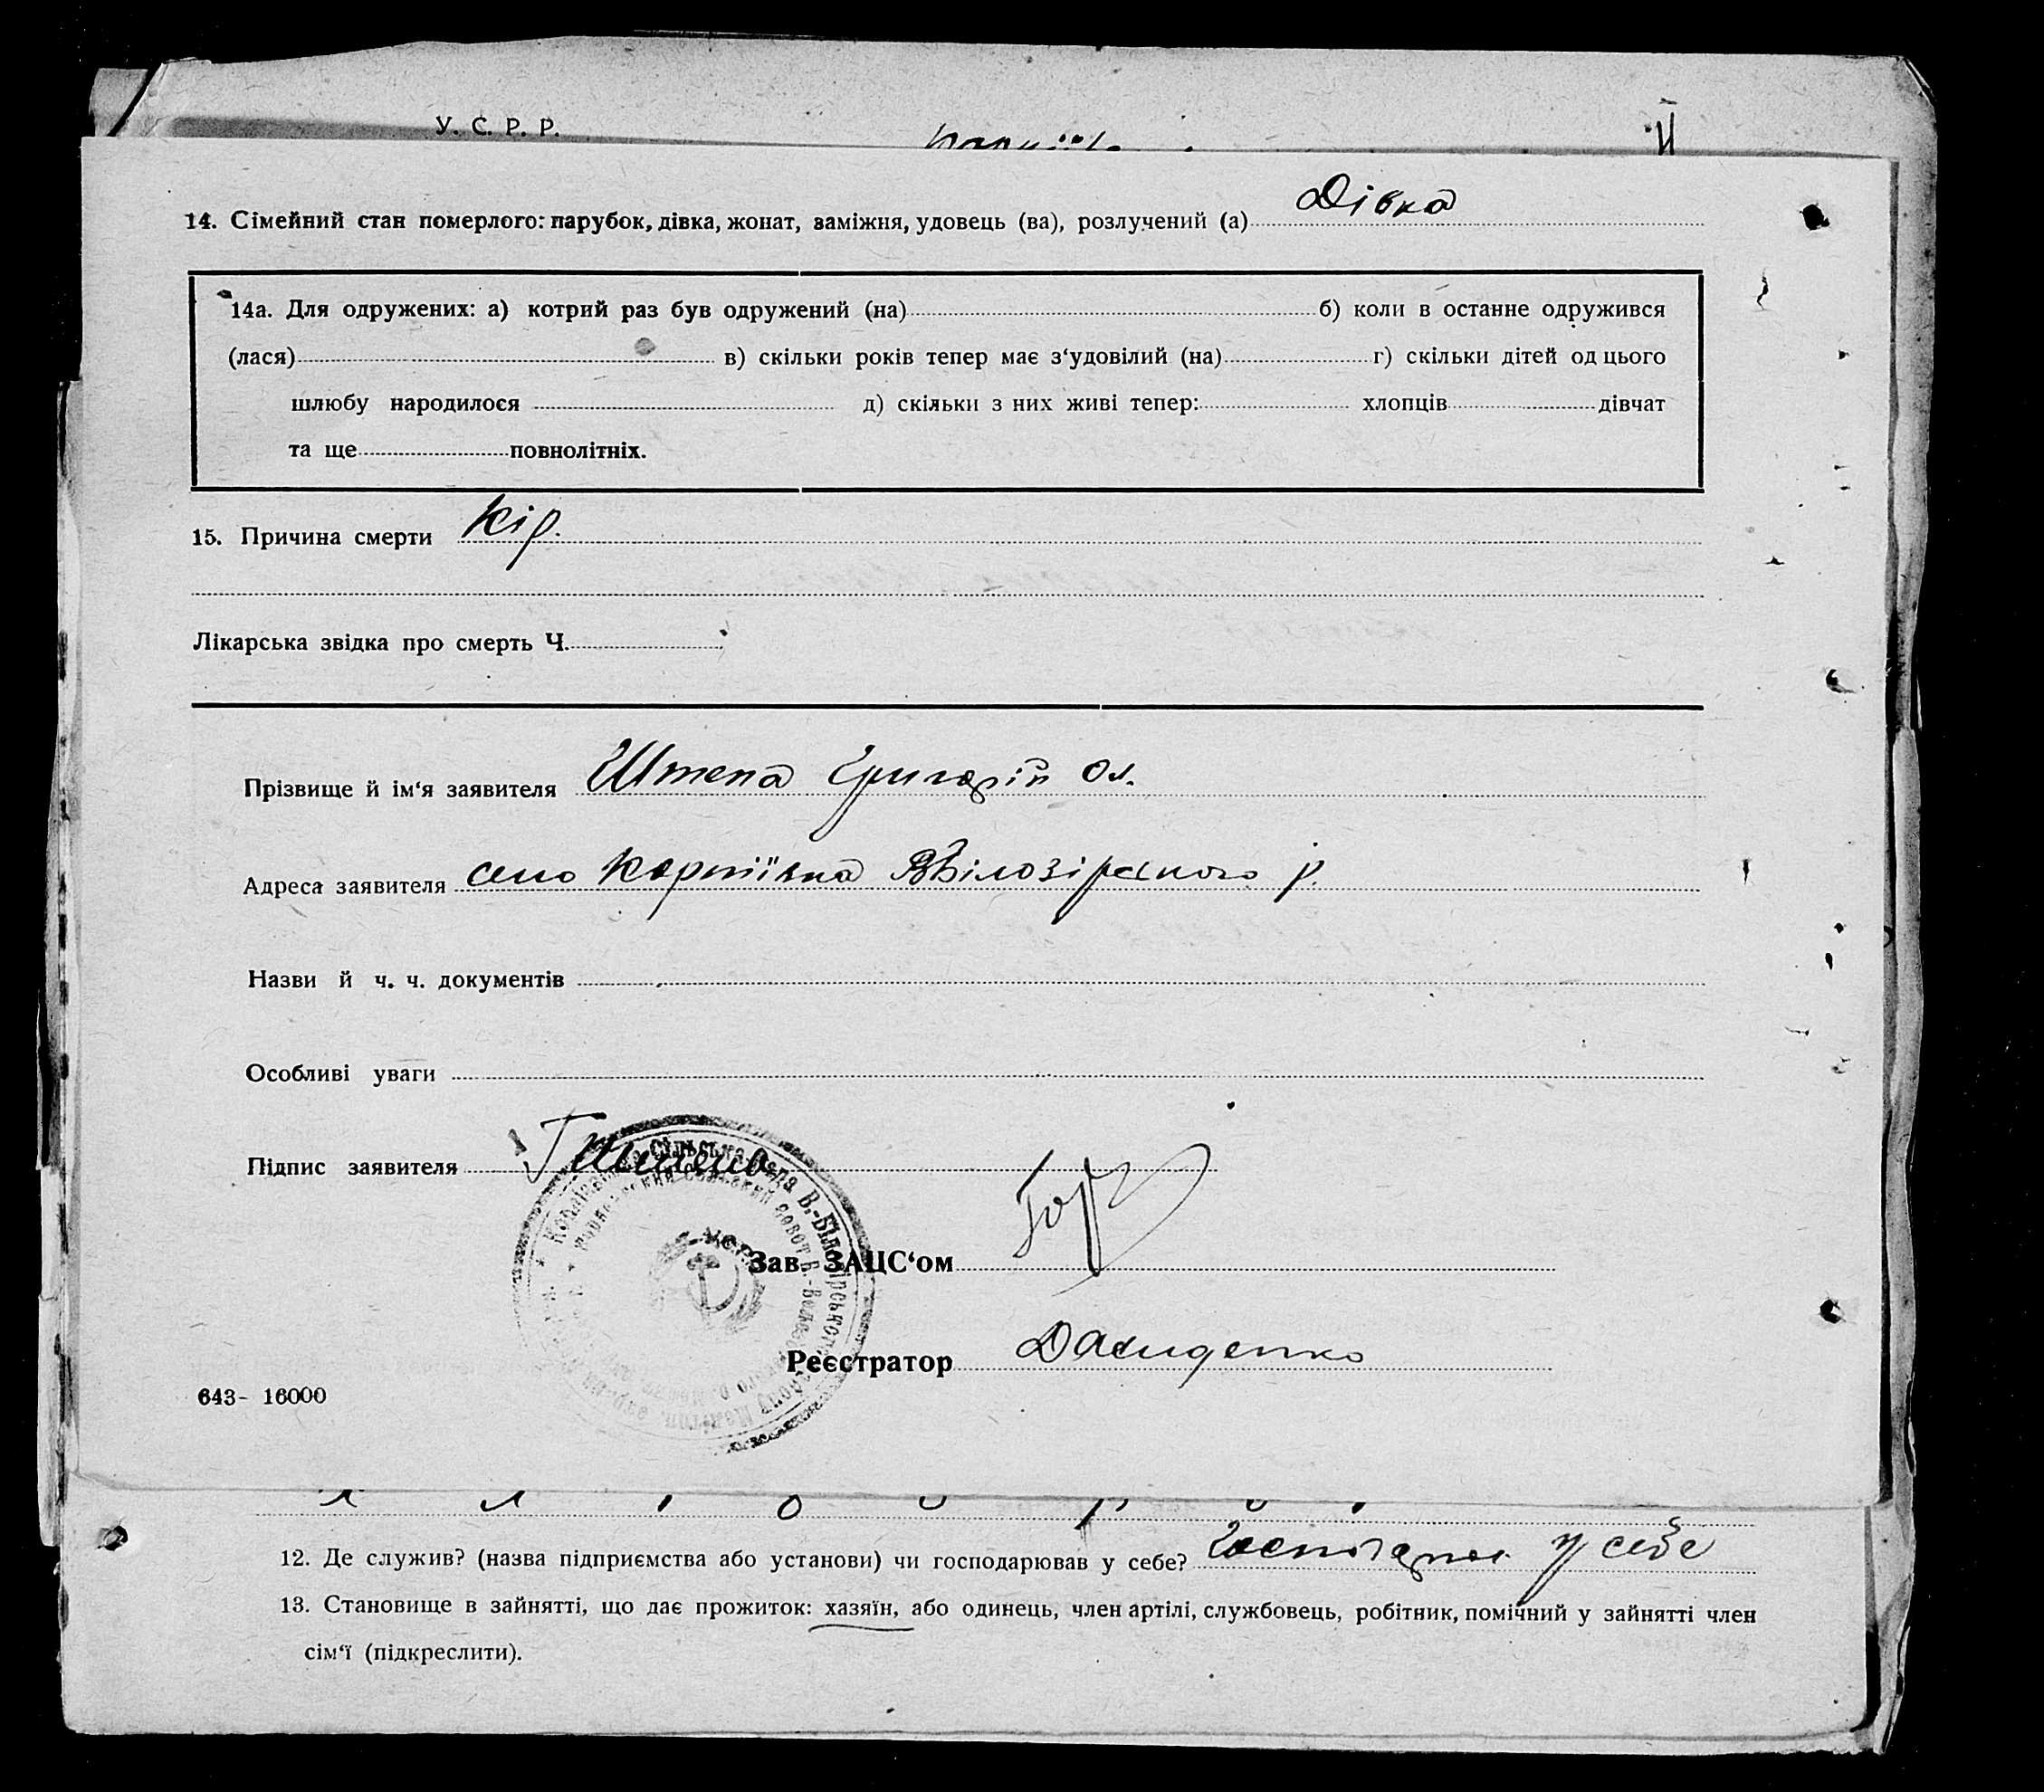 У. С. Р. Р.
14. Сімейний стан померлого: парубок, дівка, жонат, заміжня, удовець (ва), розлучений (а) Дівка
14а. Для одружених: а) котрий раз був одружений (на) б) коли в останнє одружився
(лася) в) скільки років тепер має з‘удовілий (на) г) скільки дітей од цього
шлюбу народилося д) скільки з них живі тепер: хлопців дівчат
та ще повнолітніх.
15. Причина смерти Кір.
Лікарська звідка про смерть Ч.
Прізвище й ім‘я заявителя Штепа Григорій Ол.
Адреса заявителя село Корніївка Вбілозірського р.
Назви й ч. ч. документів
Особливі уваги
Підпис заявителя
Зав. ЗАЦС‘ом
Реєстратор Давиденко
643- 16000
12. Де служив? (назва підприємства або установи) чи господарював у себе? у себе
13. Становище в зайнятті, що дає прожиток: хазяїн, або одинець, член артілі, службовець, робітник, помічний у зайнятті член
сім‘ї (підкреслити).